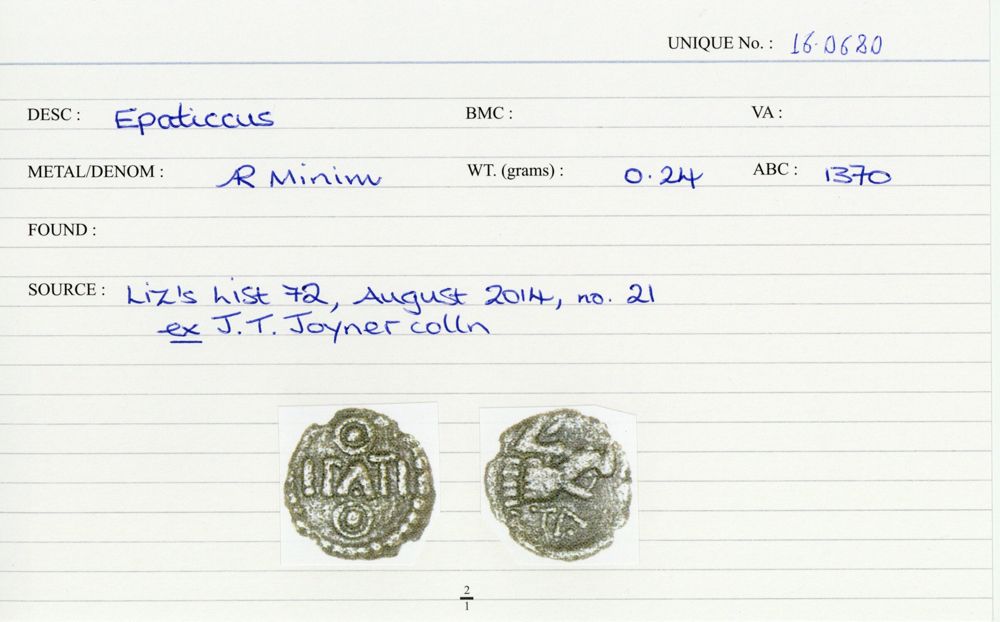 UNIQUE No. : 16·0680
DESC : Epaticcus BMC : VA :
METAL/DENOM : AR Minim WT. (grams) : 0·24 ABC : 1370
FOUND :
SOURCE : Liz's List 72, August 2014, no. 21
ex J.T. Joyner colln
TA
2
1